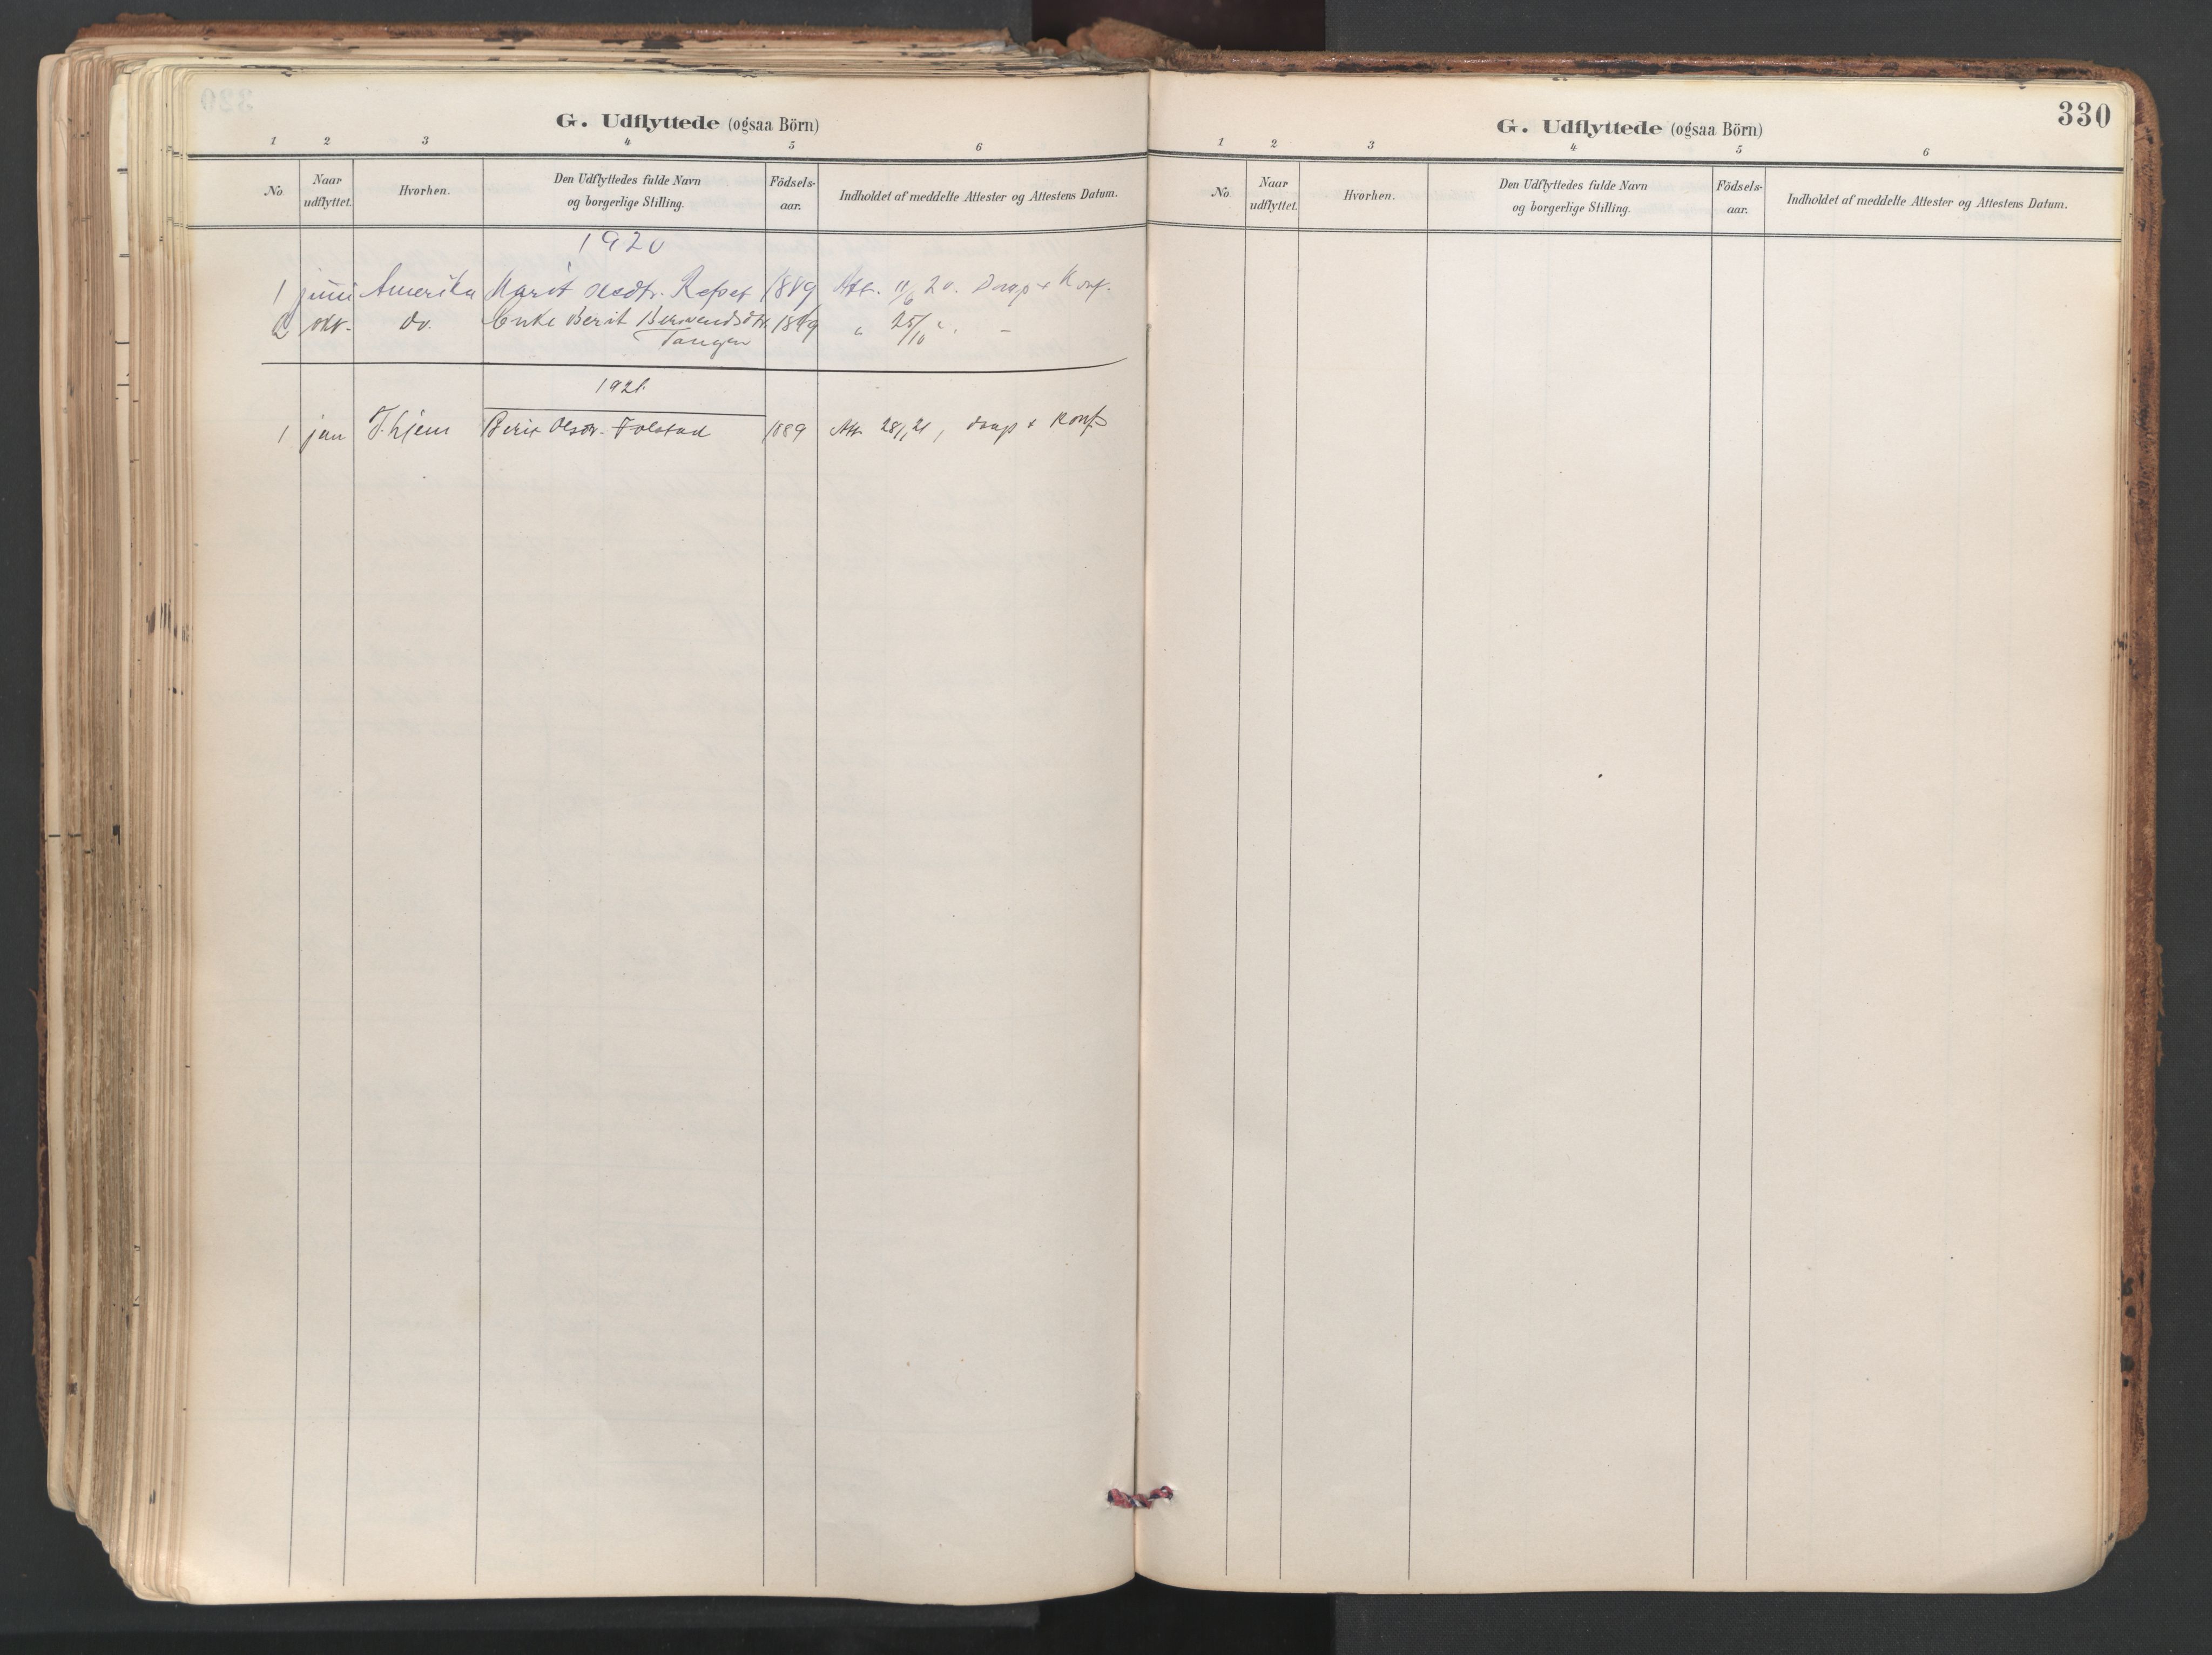 G. Udflyttede (ogsaa Börn)
1 2 3 4 5 6
No Naar udflyttet. Hvorhen. Den Udflyttedes fulde Navn og borgerlige Stilling. Födsels-aar. Indholdet af meddelte Attester og Attestens Datum.
1920
1 juni Amerika Marit 1889 Att. 11/6 20. Daap + Konf.
2 okt. do. Enke Berit 25/10 -
Tangen
1921
1 jan Berit Olsdr. Folstad 1889 Att 28/1 21, daap + Konf
330
G. Udflyttede (ogsaa Börn)
1 2 3 4 5 6
No Naar udflyttet. Hvorhen. Den Udflyttedes fulde Navn og borgerlige Stilling. Födsels-aar. Indholdet af meddelte Attester og Attestens Datum.